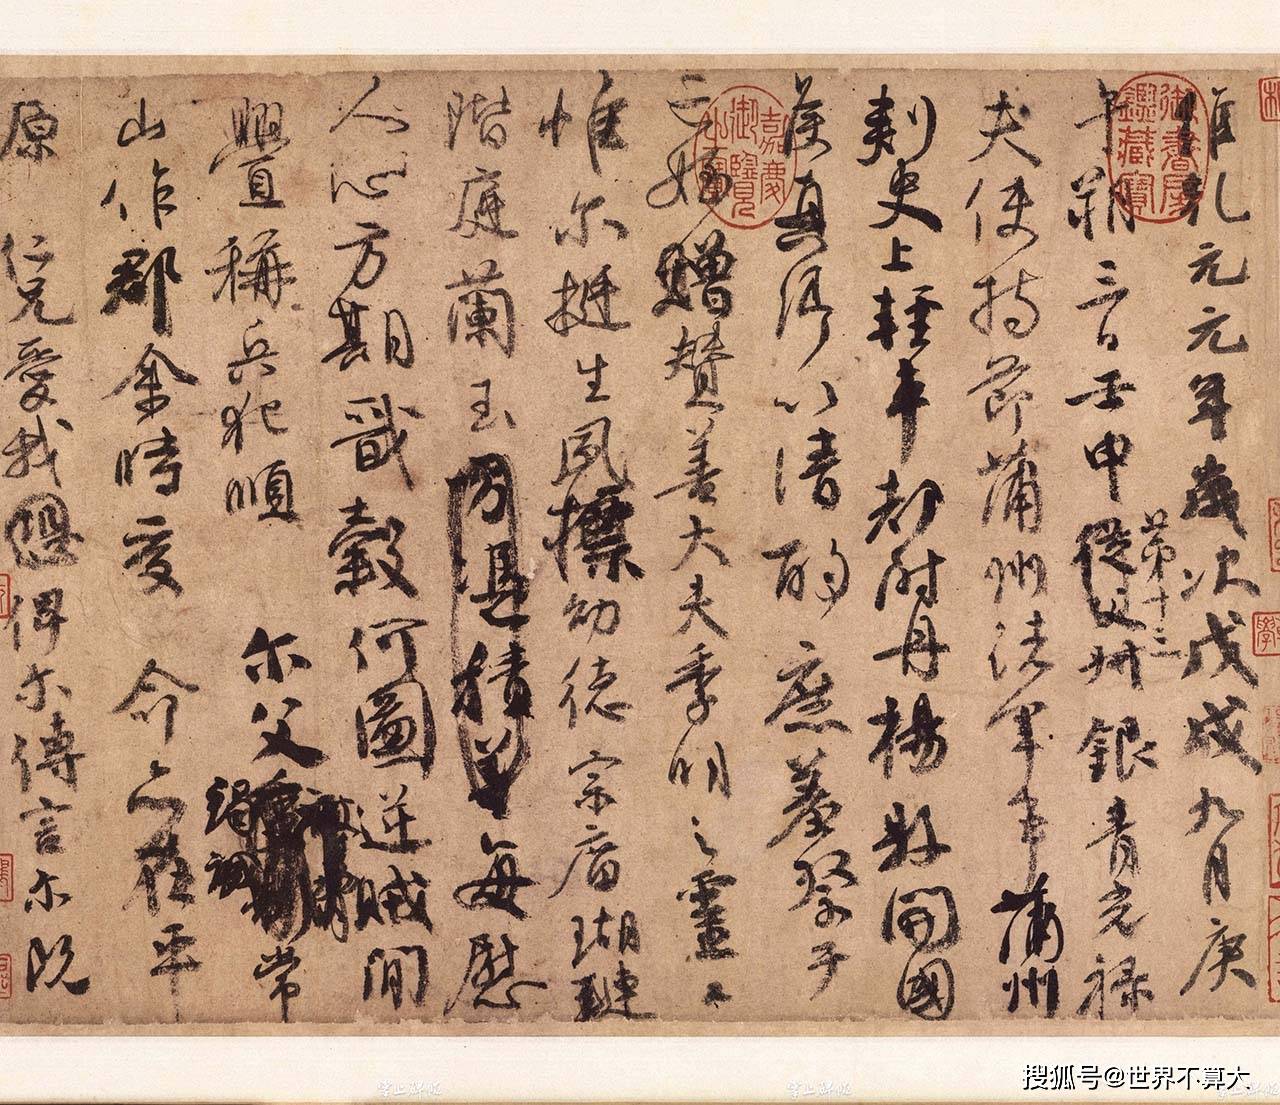 維乾元元年歲次戊戌九月庚
午朔三日壬申
第十三
從父叔銀青光禄
夫使持節蒲州諸軍事蒲州
刺史上輕車都尉丹楊縣開國
侯真卿以清酌庶羞祭于
亡姪贈贊善大夫季明之靈曰
惟尔挺生夙標幼德宗廟瑚璉
階庭蘭玉方憑積善每慰
人心方期戩穀何圖逆賊閒
舋稱兵犯順 尔父
常
山作郡余時受 命亦在平
原 仁兄愛我恐俾尔傳言尔既
嘉慶御覽之寶
御書房鑑藏寶
搜狐号@世界不算大